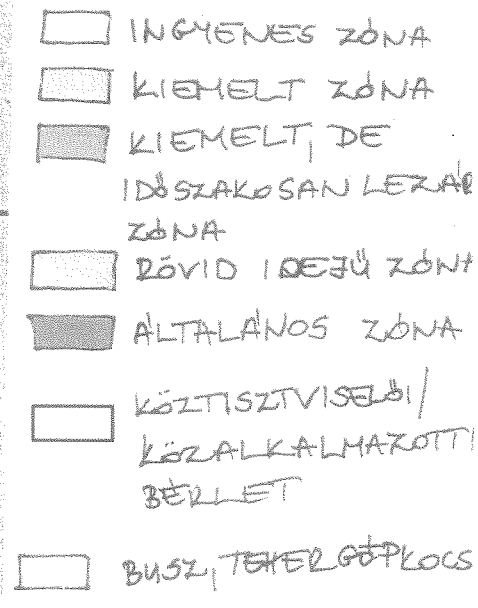 INGYENES ZÓNA
KIEMELT ZÓNA
KIEMELT, DE
IDŐSZAKOSAN LEZÁR
ZÓNA
RÖVID IDEJŰ ZÓN
ÁLTALÁNOS ZÓNA
KÖZTISZTVISELŐI/
KÖZALKALMAZOTTI
BÉRLET
BUSZ, TEHERGÉPKOCS